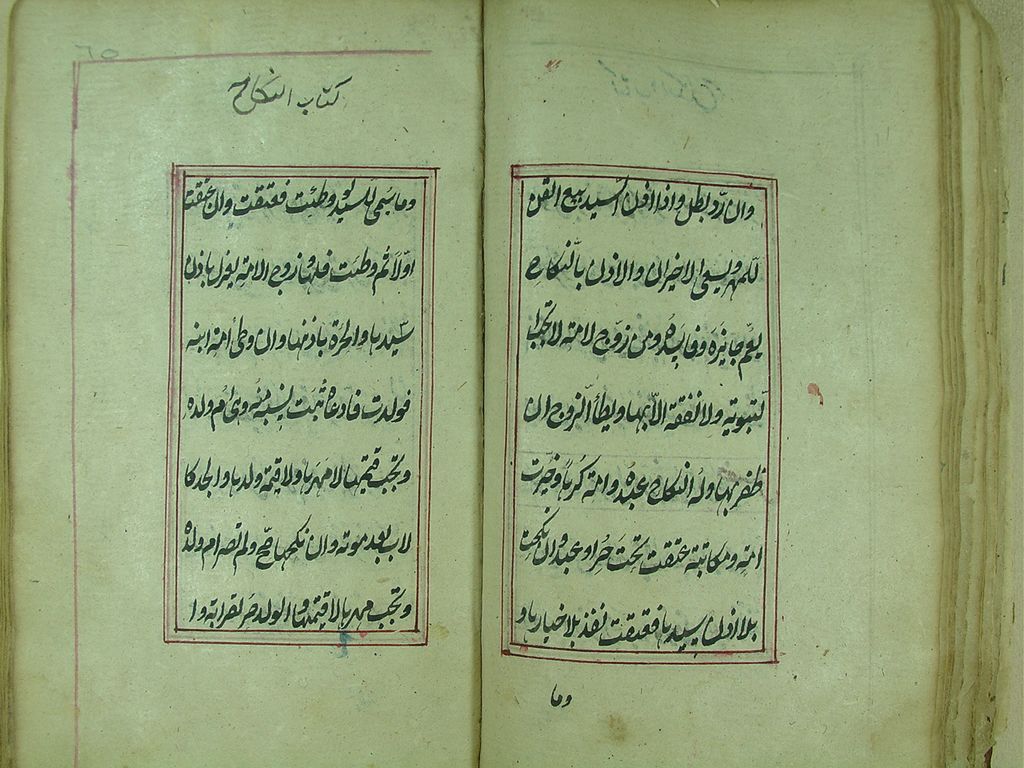 وان ردّ بطل واذا اذن السيد يبيع القن
للمهر ويسعى الاخيران والاذن بالنكاح
يعم جايزه وفاسده ومن زوّج لامة لا تجب
لتبوية ولا نفقة الا بها ويطأ الزوج ان
ظفر بها وله انكاح عبده وامته كرها وخيرت
امة ومكاتبة عتقت تحت حر او عبد وان نكحت
بلا اذن سيدها فعتقت نفذ بلا خيارها و
وما
٦٥
كتاب النكاح
وما سمى للسيد لو وطئت فعتقت وان عتقت
اولا ثم وطئت فلها وزوج الامة يعزل باذن
سيدها والحرة باذنها وان وطئ امة ابنه
فولدت فادعاه ثبت نسبه منه وهي ام ولده
وتجب قيمتها لا مهرها ولا قيمة ولدها والجد كا
لاب بعد موته وان نكحها صح ولم تصر ام ولده
وتجب مهرها لا قيمتها والولد حر لقرابة وا